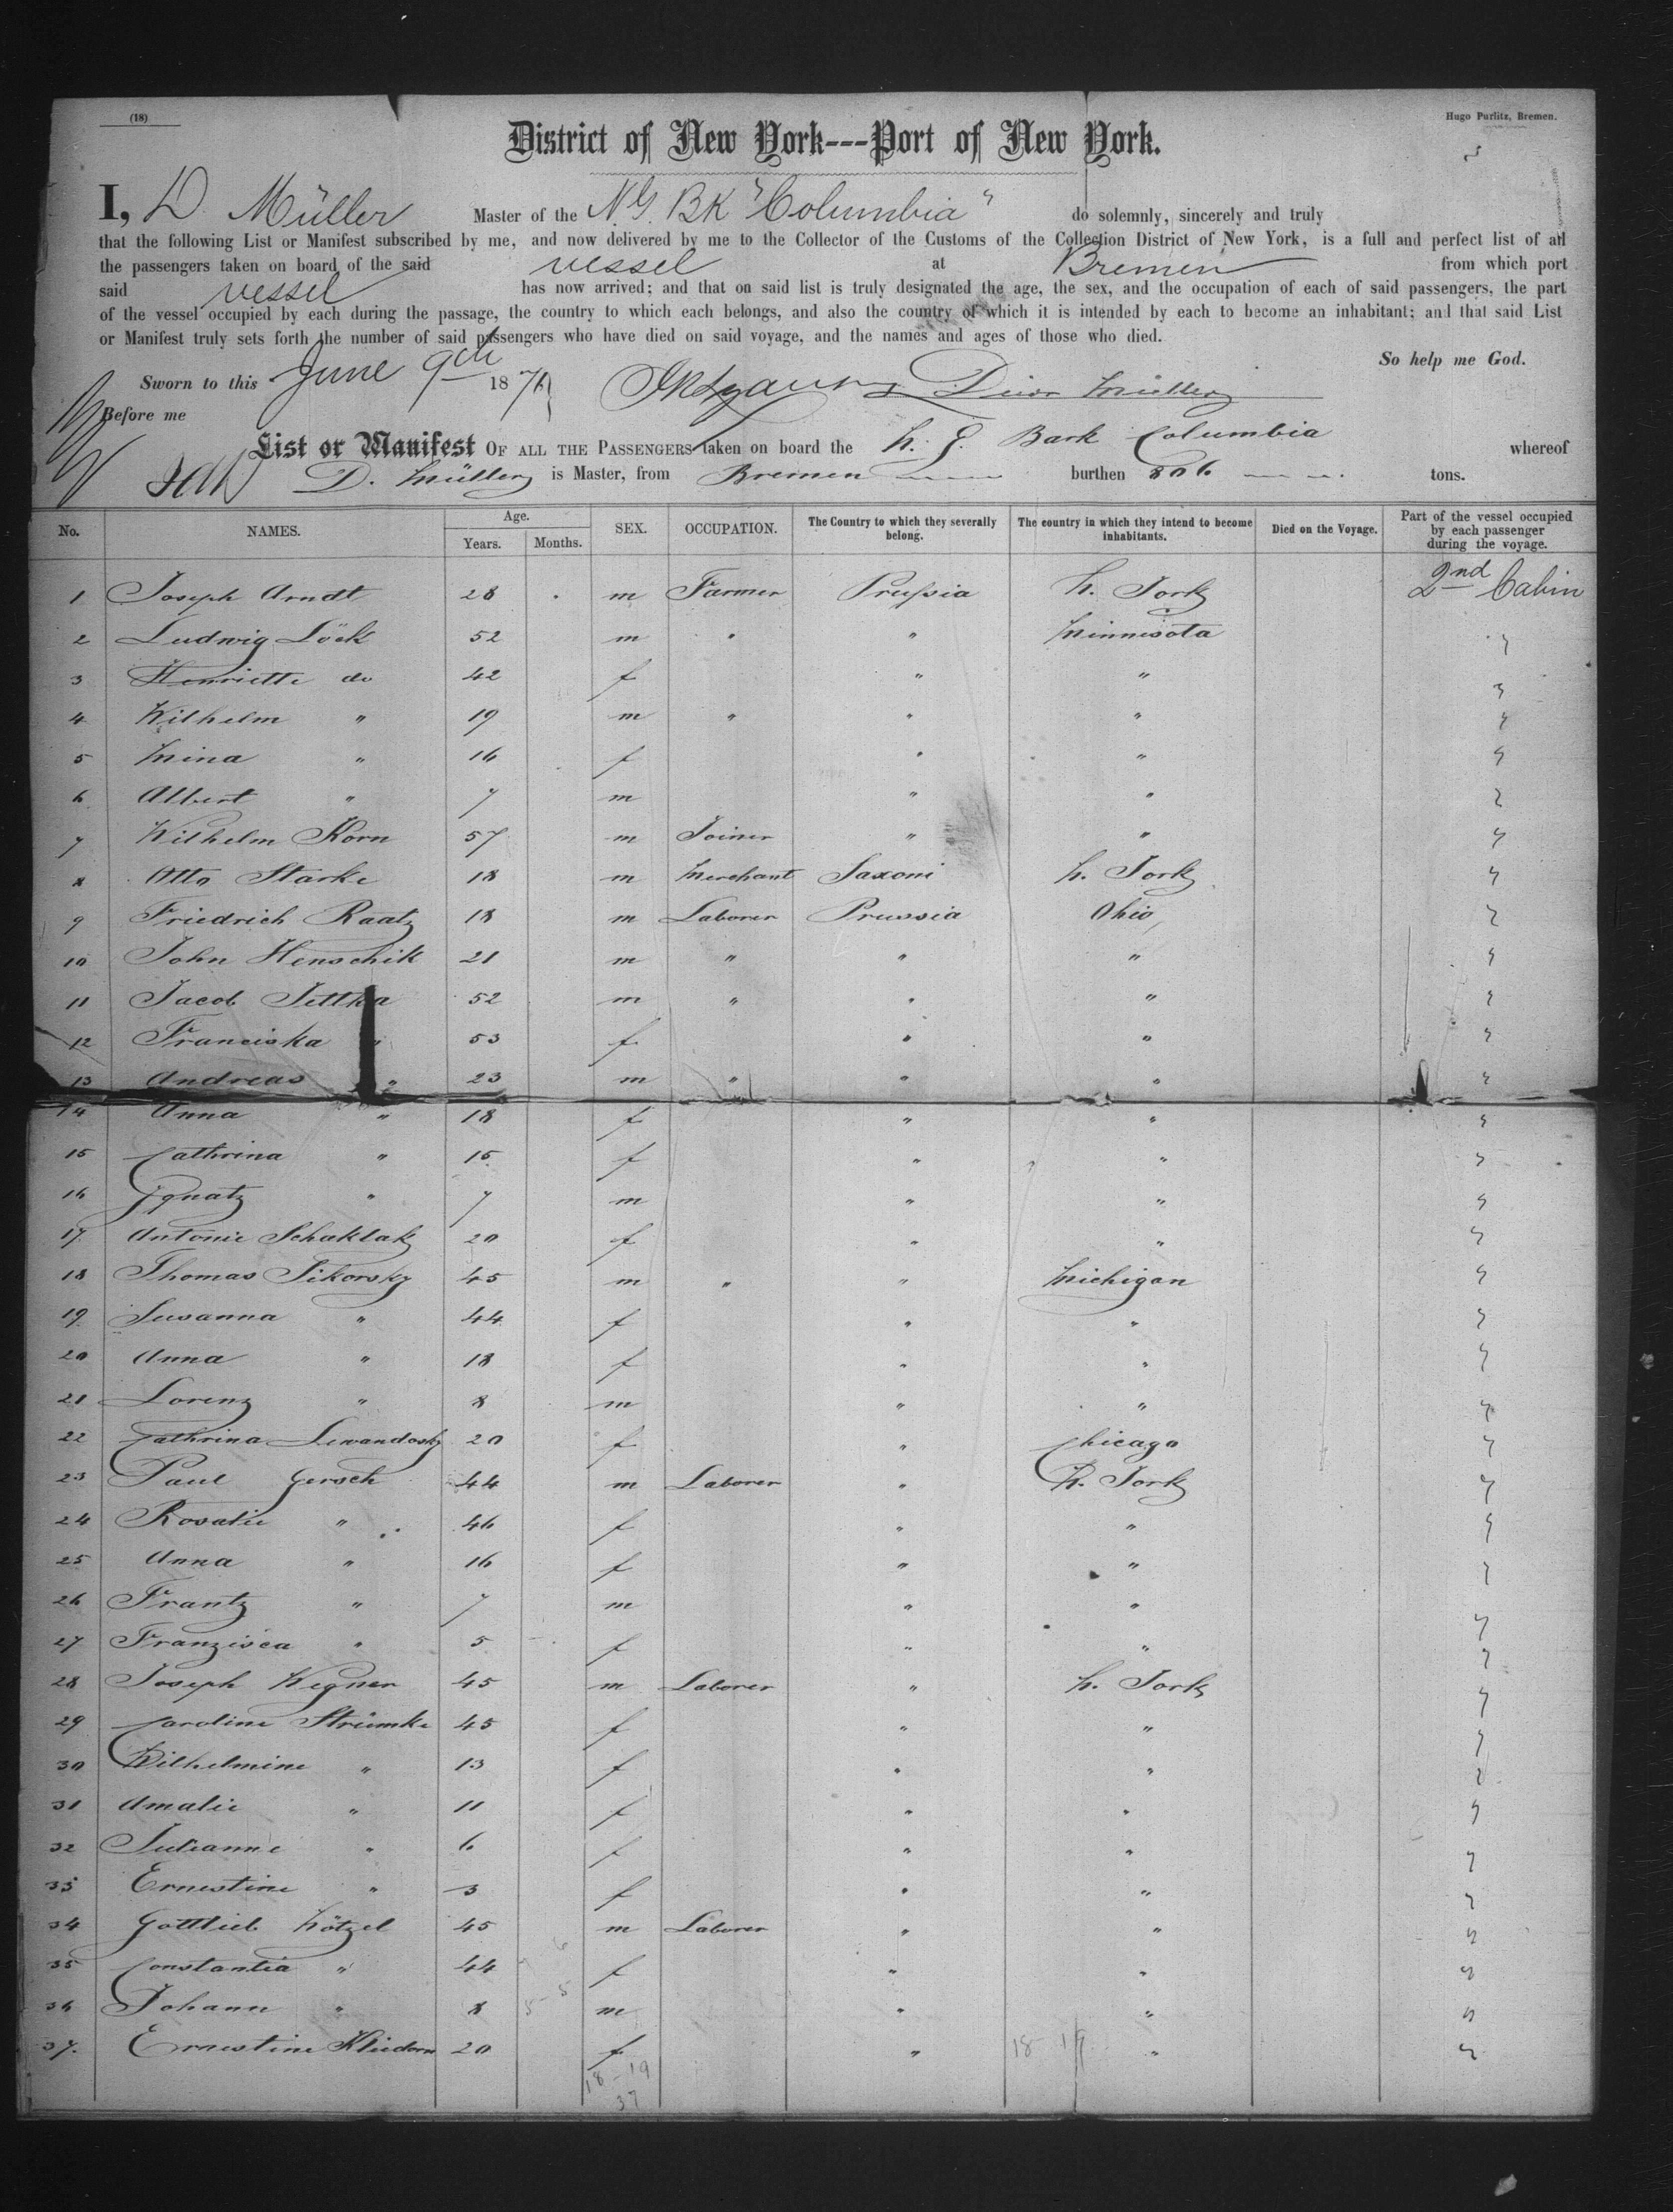 (18)
Hugo Purlitz, Bremen.
District of New York---Port of New York.
I, D. Müller Master of the N.G. BK "Columbia" do solemnly, sincerely and truly
that the following List or Manifest subscribed by me, and now delivered by me to the Collector of the Customs of the Collection District of New York, is a full and perfect list of all
the passengers taken on board of the said vessel at Bremen from which port
said vessel has now arrived; and that on said list is truly designated the age, the sex, and the occupation of each of said passengers, the part
of the vessel occupied by each during the passage, the country to which each belongs, and also the country of which it is intended by each to become an inhabitant; and that said List
or Manifest truly sets forth the number of said passengers who have died on said voyage, and the names and ages of those who died.
So help me God.
Sworn to this June 9th 187 Müller
Before me
List or Manifest OF ALL THE PASSENGERS taken on board the N. G. Bark Columbia whereof
D. Müller is Master, from Bremen burthen 806 tons.
No. NAMES. Age. Years. Months. SEX. OCCUPATION. The Country to which they severally belong. The country in which they intend to become inhabitants. Died on the Voyage. Part of the vessel occupied by each passenger during the voyage.
1 Joseph Arndt 28 m Farmer Prussia N. York 2nd Cabin
2 Ludwig Löck 52 m " " Minnisota "
3 Henriette do 42 f " " "
4 Wilhelm " 19 m " " " "
5 Mina " 16 f " " "
6 Albert " 7 m " " "
7 Wilhelm Korn 57 m Joiner " " "
8 Otto Starke 18 m Merchant Saxoni N. York "
9 Friedrich Raatz 18 m Laborer Prussia Ohio "
10 John Henschik 21 m " " " "
11 Jacob Jettka 52 m " " " "
12 Franciska " 53 f " " "
13 Andreas " 23 m " " " "
14 Anna " 18 f " " "
15 Cathrina " 15 f " " "
16 Ignatz " 7 m " " "
17 Antonie Schaklak 20 f " " "
18 Thomas Sikorsky 45 m " " Michigan "
19 Susanna " 44 f " " "
20 Anna " 18 f " " "
21 Lorenz " 8 m " " "
22 Cathrina Lewandosky 20 f " Chicago "
23 Paul Gersch 44 m Laborer " N. York "
24 Rosalie " 46 f " " "
25 Anna " 16 f " " "
26 Frantz " 7 m " " "
27 Franzisca " 5 f " " "
28 Joseph Wegner 45 m Laborer " N. York "
29 Caroline Strümke 45 f " " "
30 Wilhelmine " 13 f " " "
31 Amalie " 11 f " " "
32 Julianne " 6 f " " "
33 Ernestine " 3 f " " "
34 Gottlieb Nötzel 45 m Laborer " " "
35 Constantia " 44 f " " "
36 Johann " 8 m " " "
37. Ernestine 20 f " " "
18-19
37
18 19